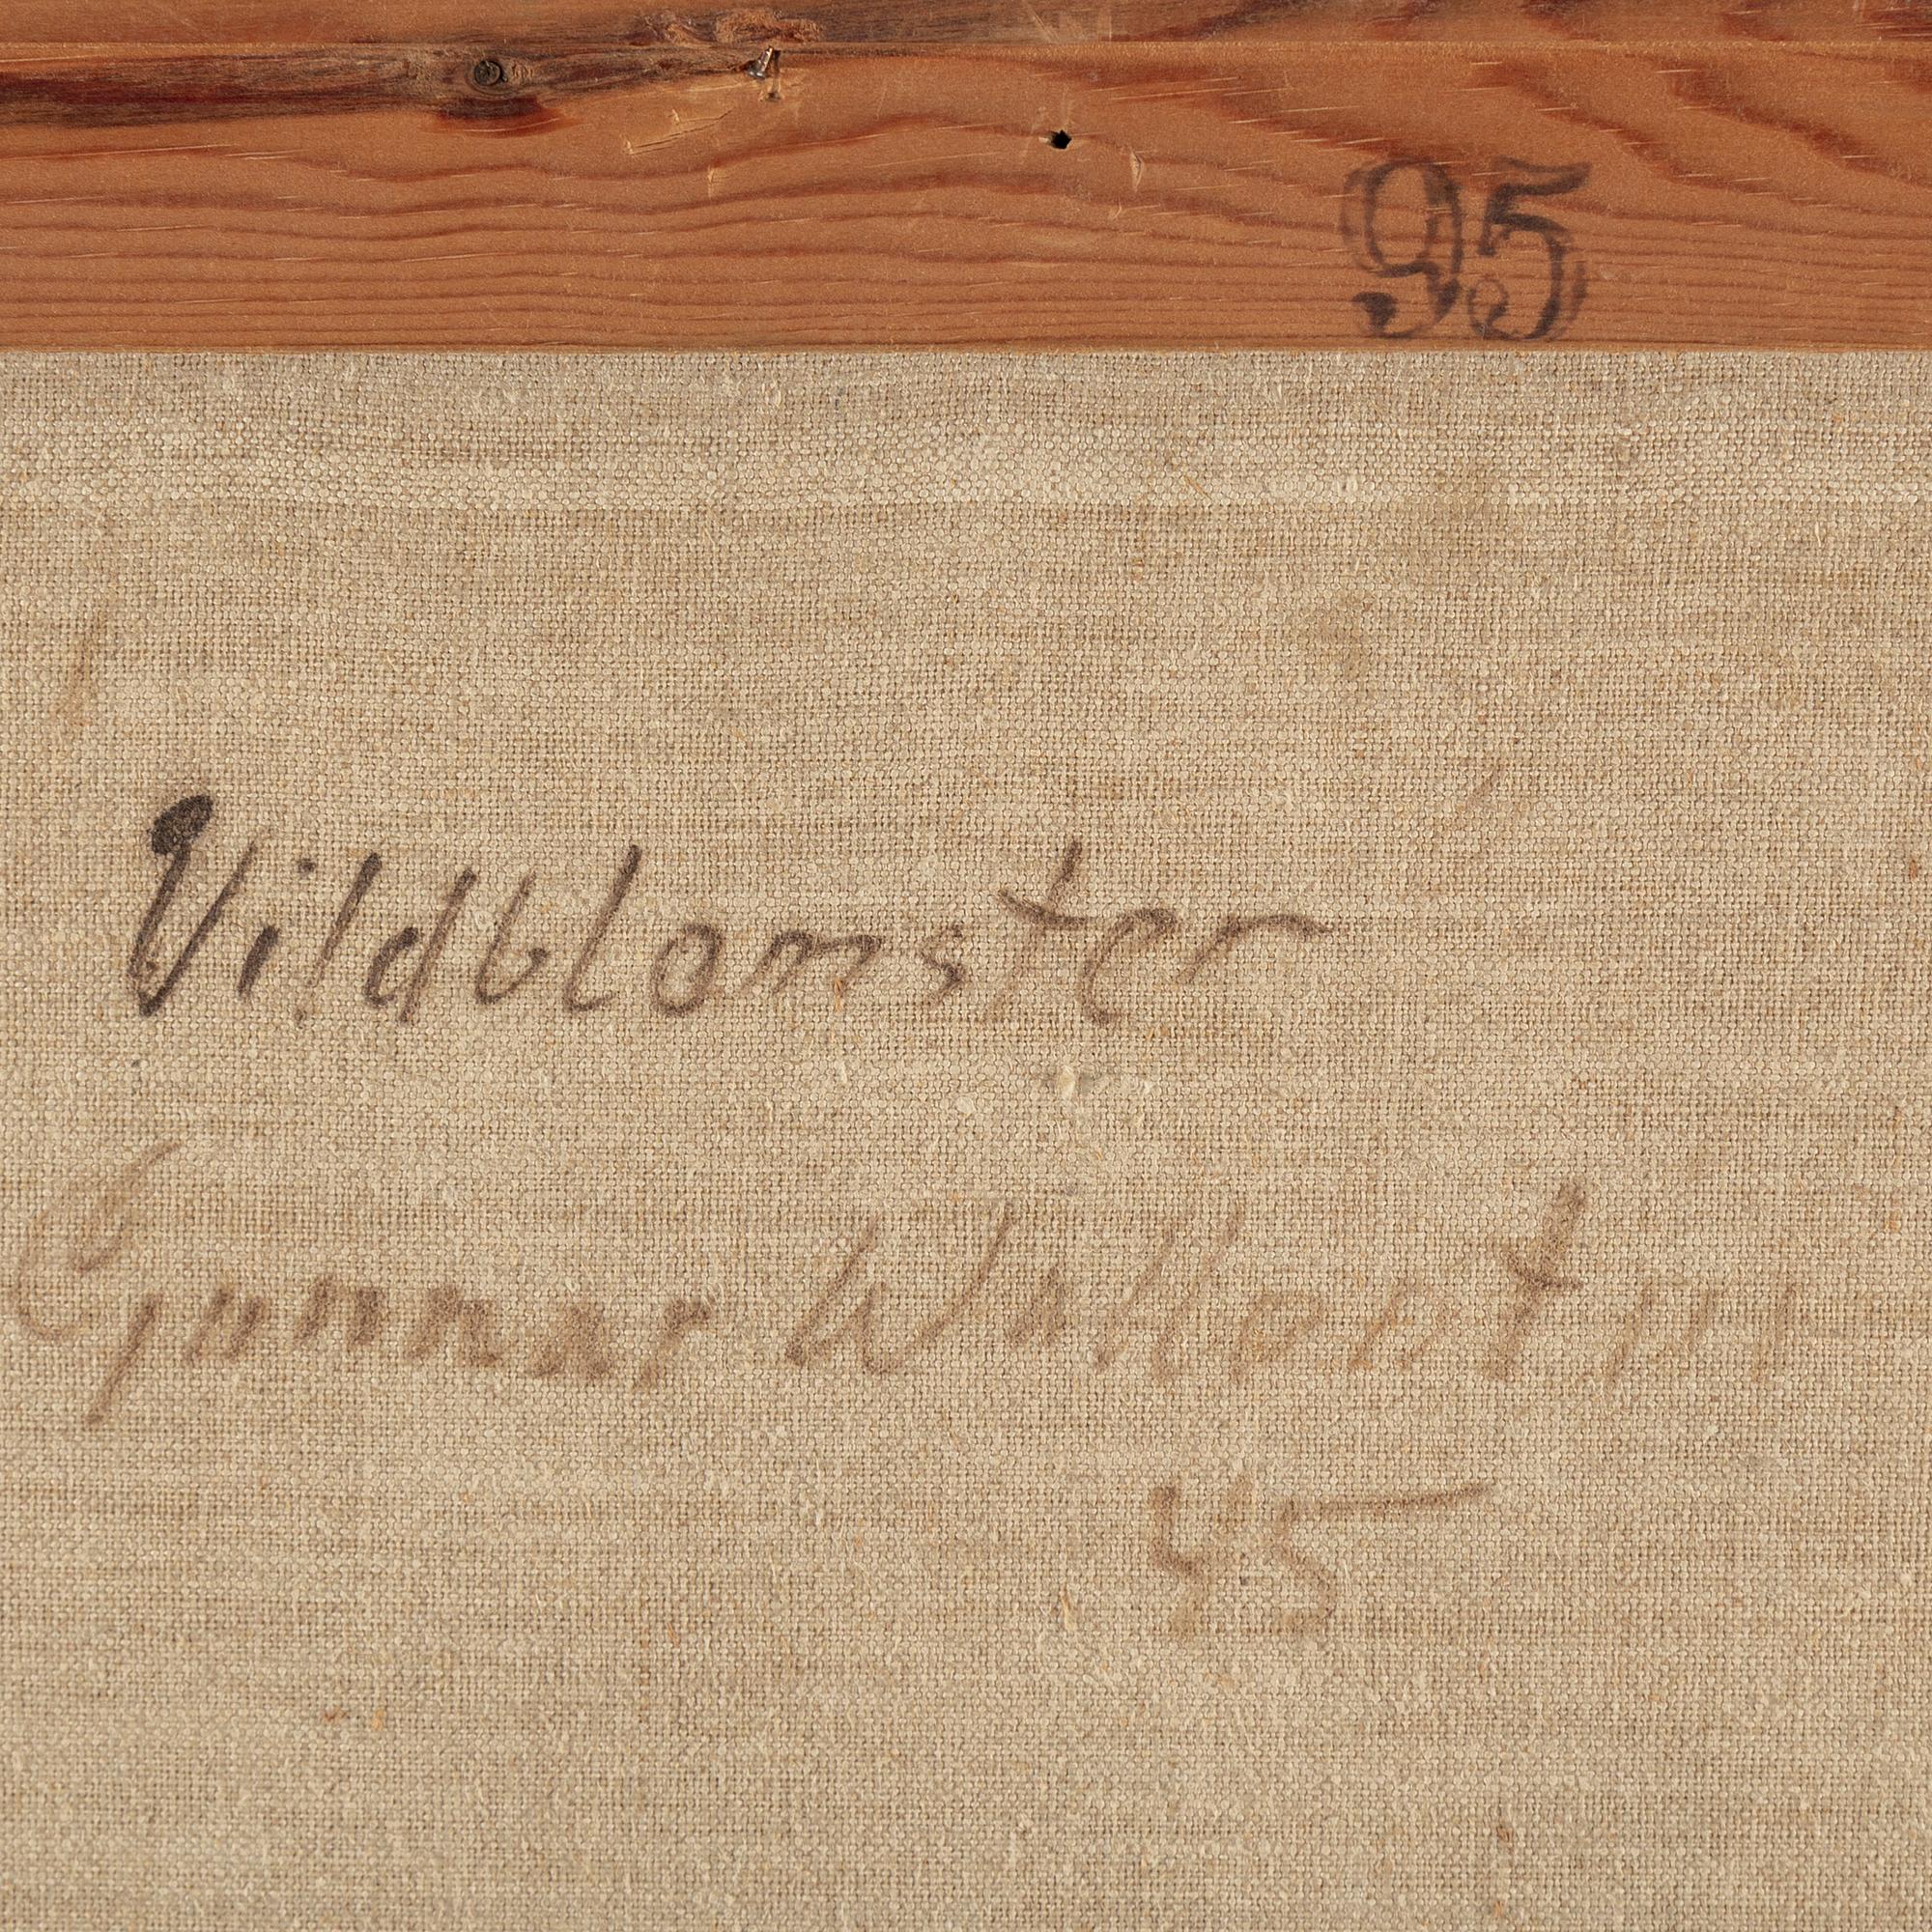 95
Vildblomster
Gunnar Wallentin
45